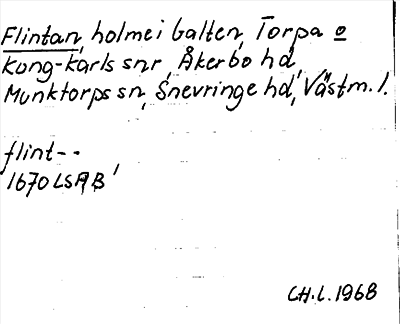 Flintan, holme i Galten, Torpa o
Kung-Karls snr, Åkerbo hd,
Munktorps sn, Snevringe hd, Västm. l.
flint--
1670 LSAB
CH.L. 1968